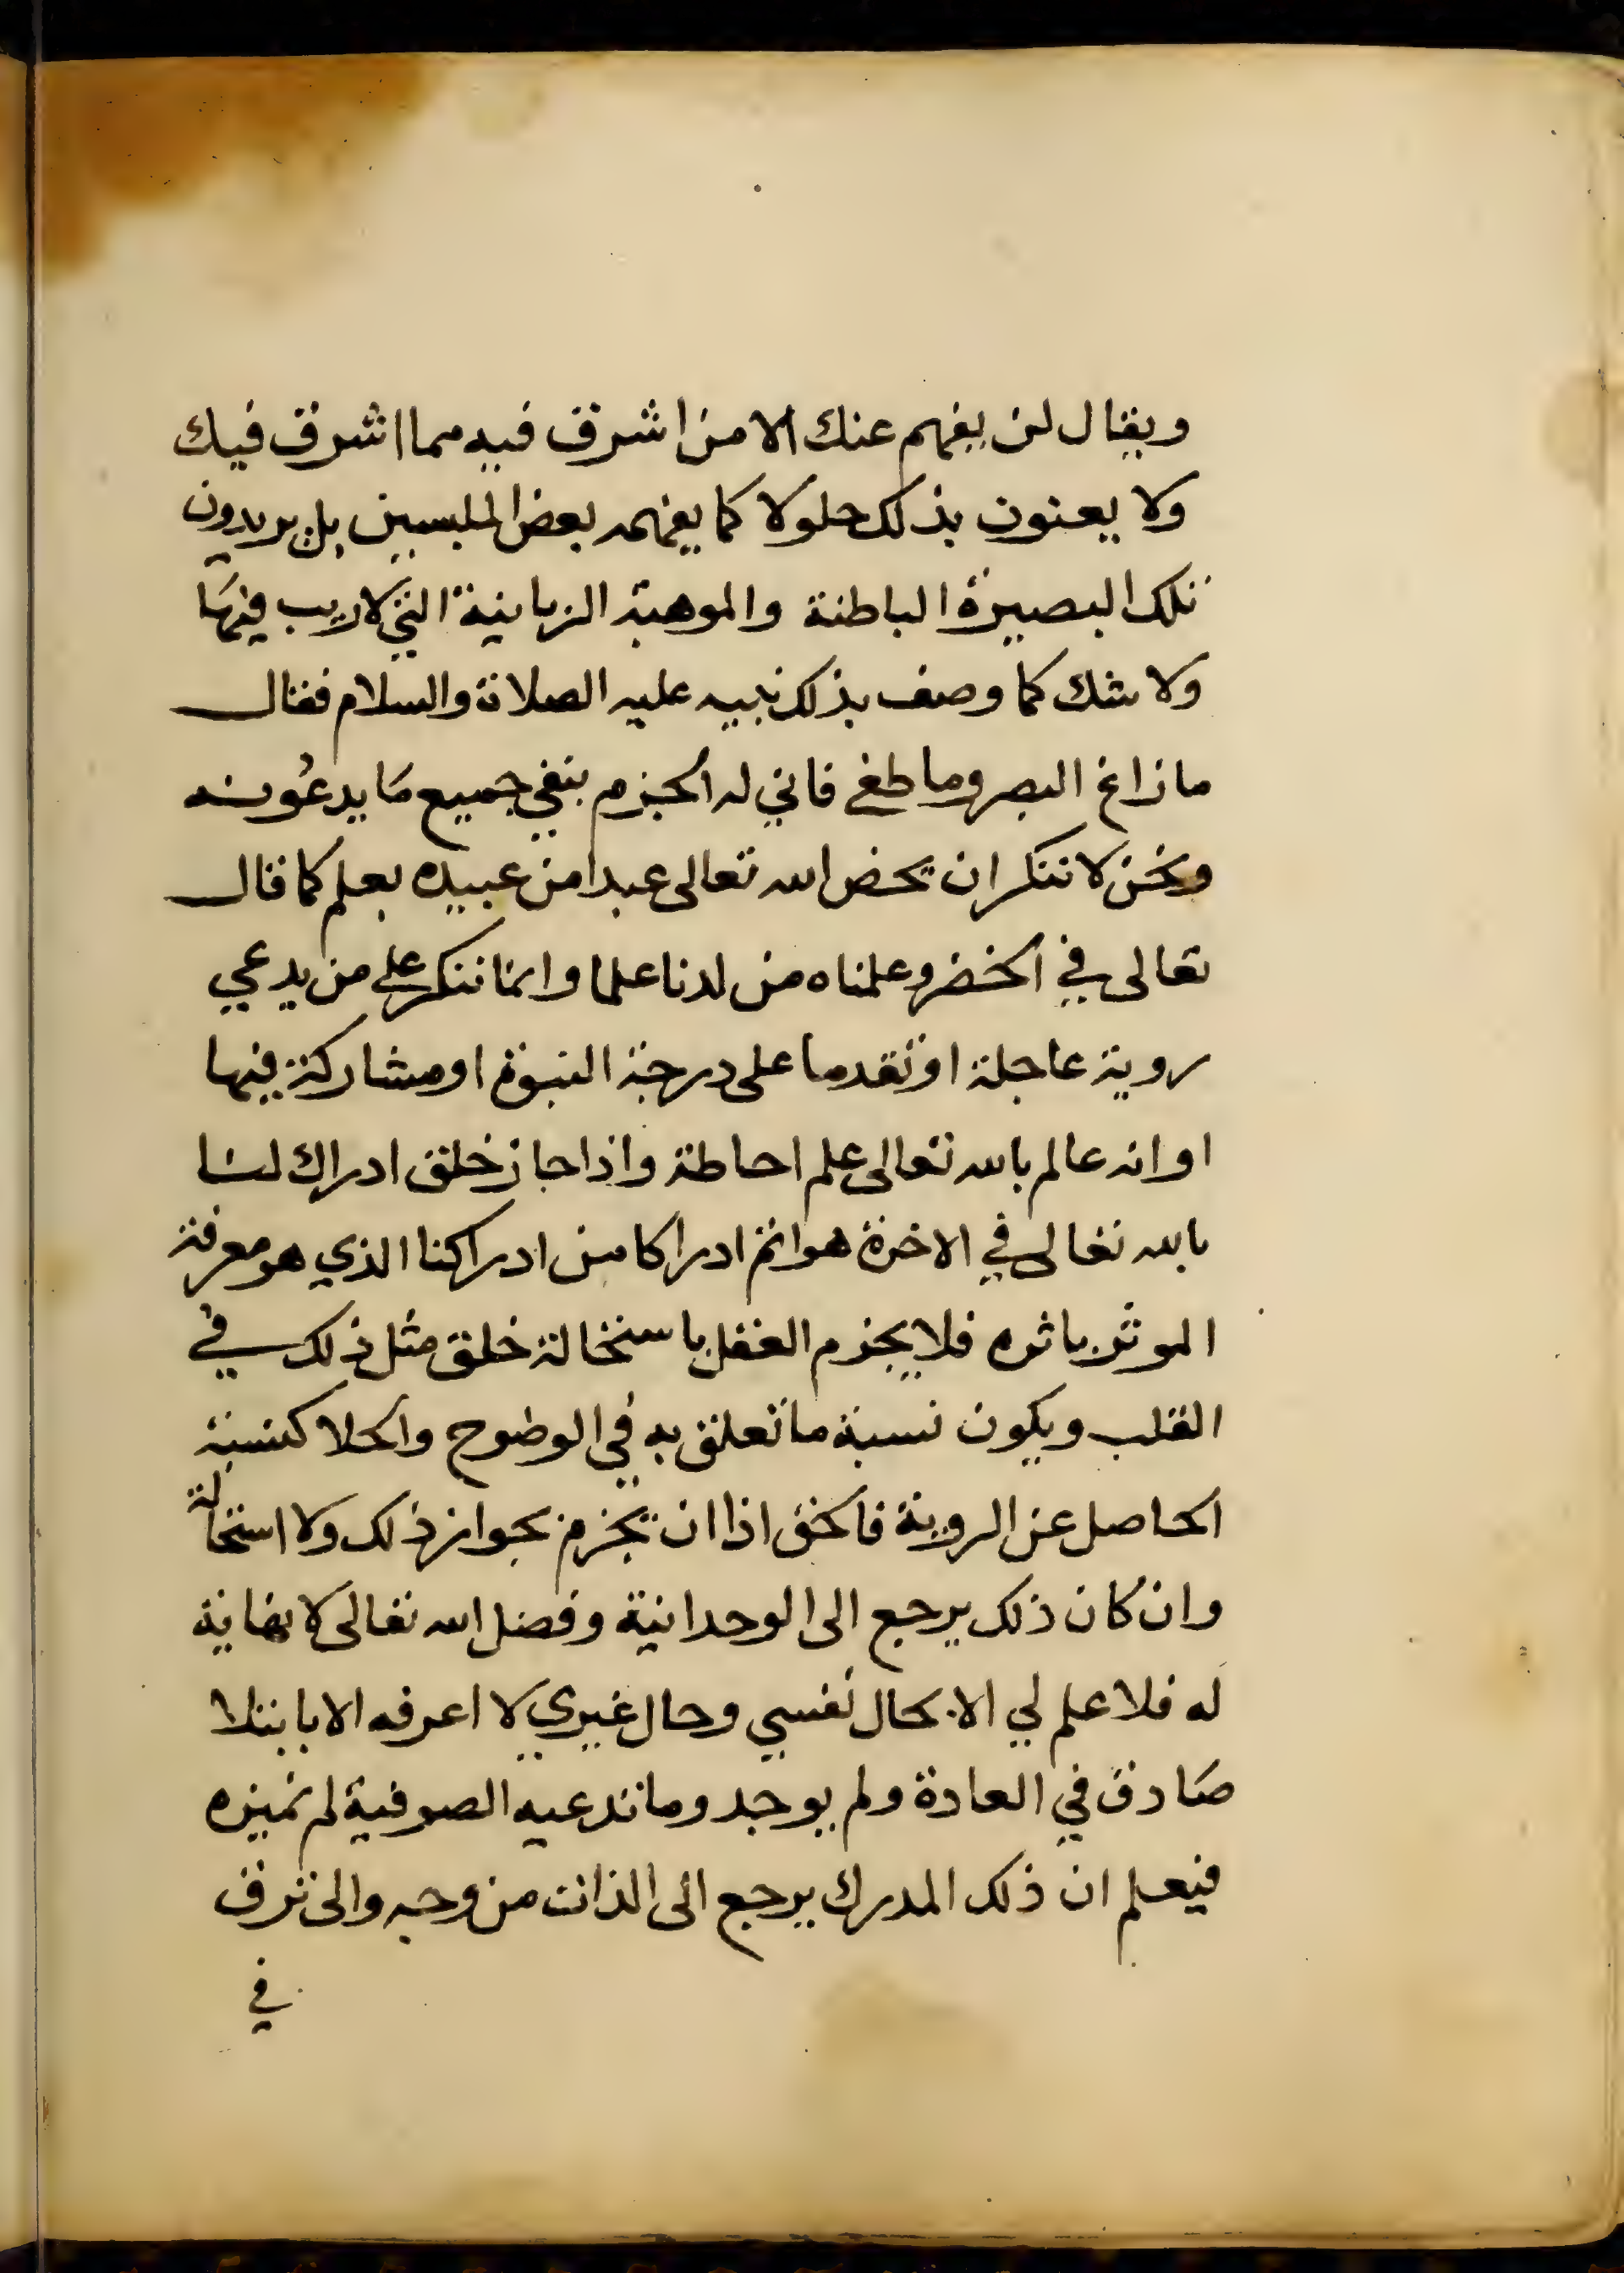 ويقال لن يفهم عنك الا من اشرق فيه مما اشرق فيك
ولا يعنون بذلك حلولا كما يفهمه بعض الملبسين بل يريدون
تلك البصيرة الباطنة والموهبة الربانية التي لا ريب فيها
ولا شك كما وصف بذلك نبيه عليه الصلاة والسلام فقال
ما زاغ البصر وما طغى فاني له الجزم بنفي جميع ما يدعونه
ونحن لا ننكر ان يخص الله تعالى عبدا من عبيده بعلم كما قال
تعالى في الخضر وعلمناه من لدنا علما وانما ننكر على من يدعي
روية عاجلة او تقدما على درجة النبوة او مشاركة فيها
او انه عالم بالله تعالى علم احاطة واذا جاز خلق ادراك لنا
بالله تعالى في الاخرة هو اتم ادراكا من ادراكنا الذي هو معرفة
الموثر باثره فلا يجزم العقل باستحالة خلق مثل ذلك في
القلب ويكون نسبة ما تعلق به في الوضوح والجلا كنسبة
الحاصل عن الروية فالحق اذا ان يجزم بجواز ذلك ولا استحالة
وان كان ذلك يرجع الى الوحدانية وفضل الله تعالى لا نهاية
له فلا علم لي الا بحال نفسي وحال غيري لا اعرفه الا بابتلا
صادق في العادة ولم يوجد وما تدعيه الصوفية لم نميزه
فيعلم ان ذلك المدرك يرجع الى الذات من وجه والى ترق
في